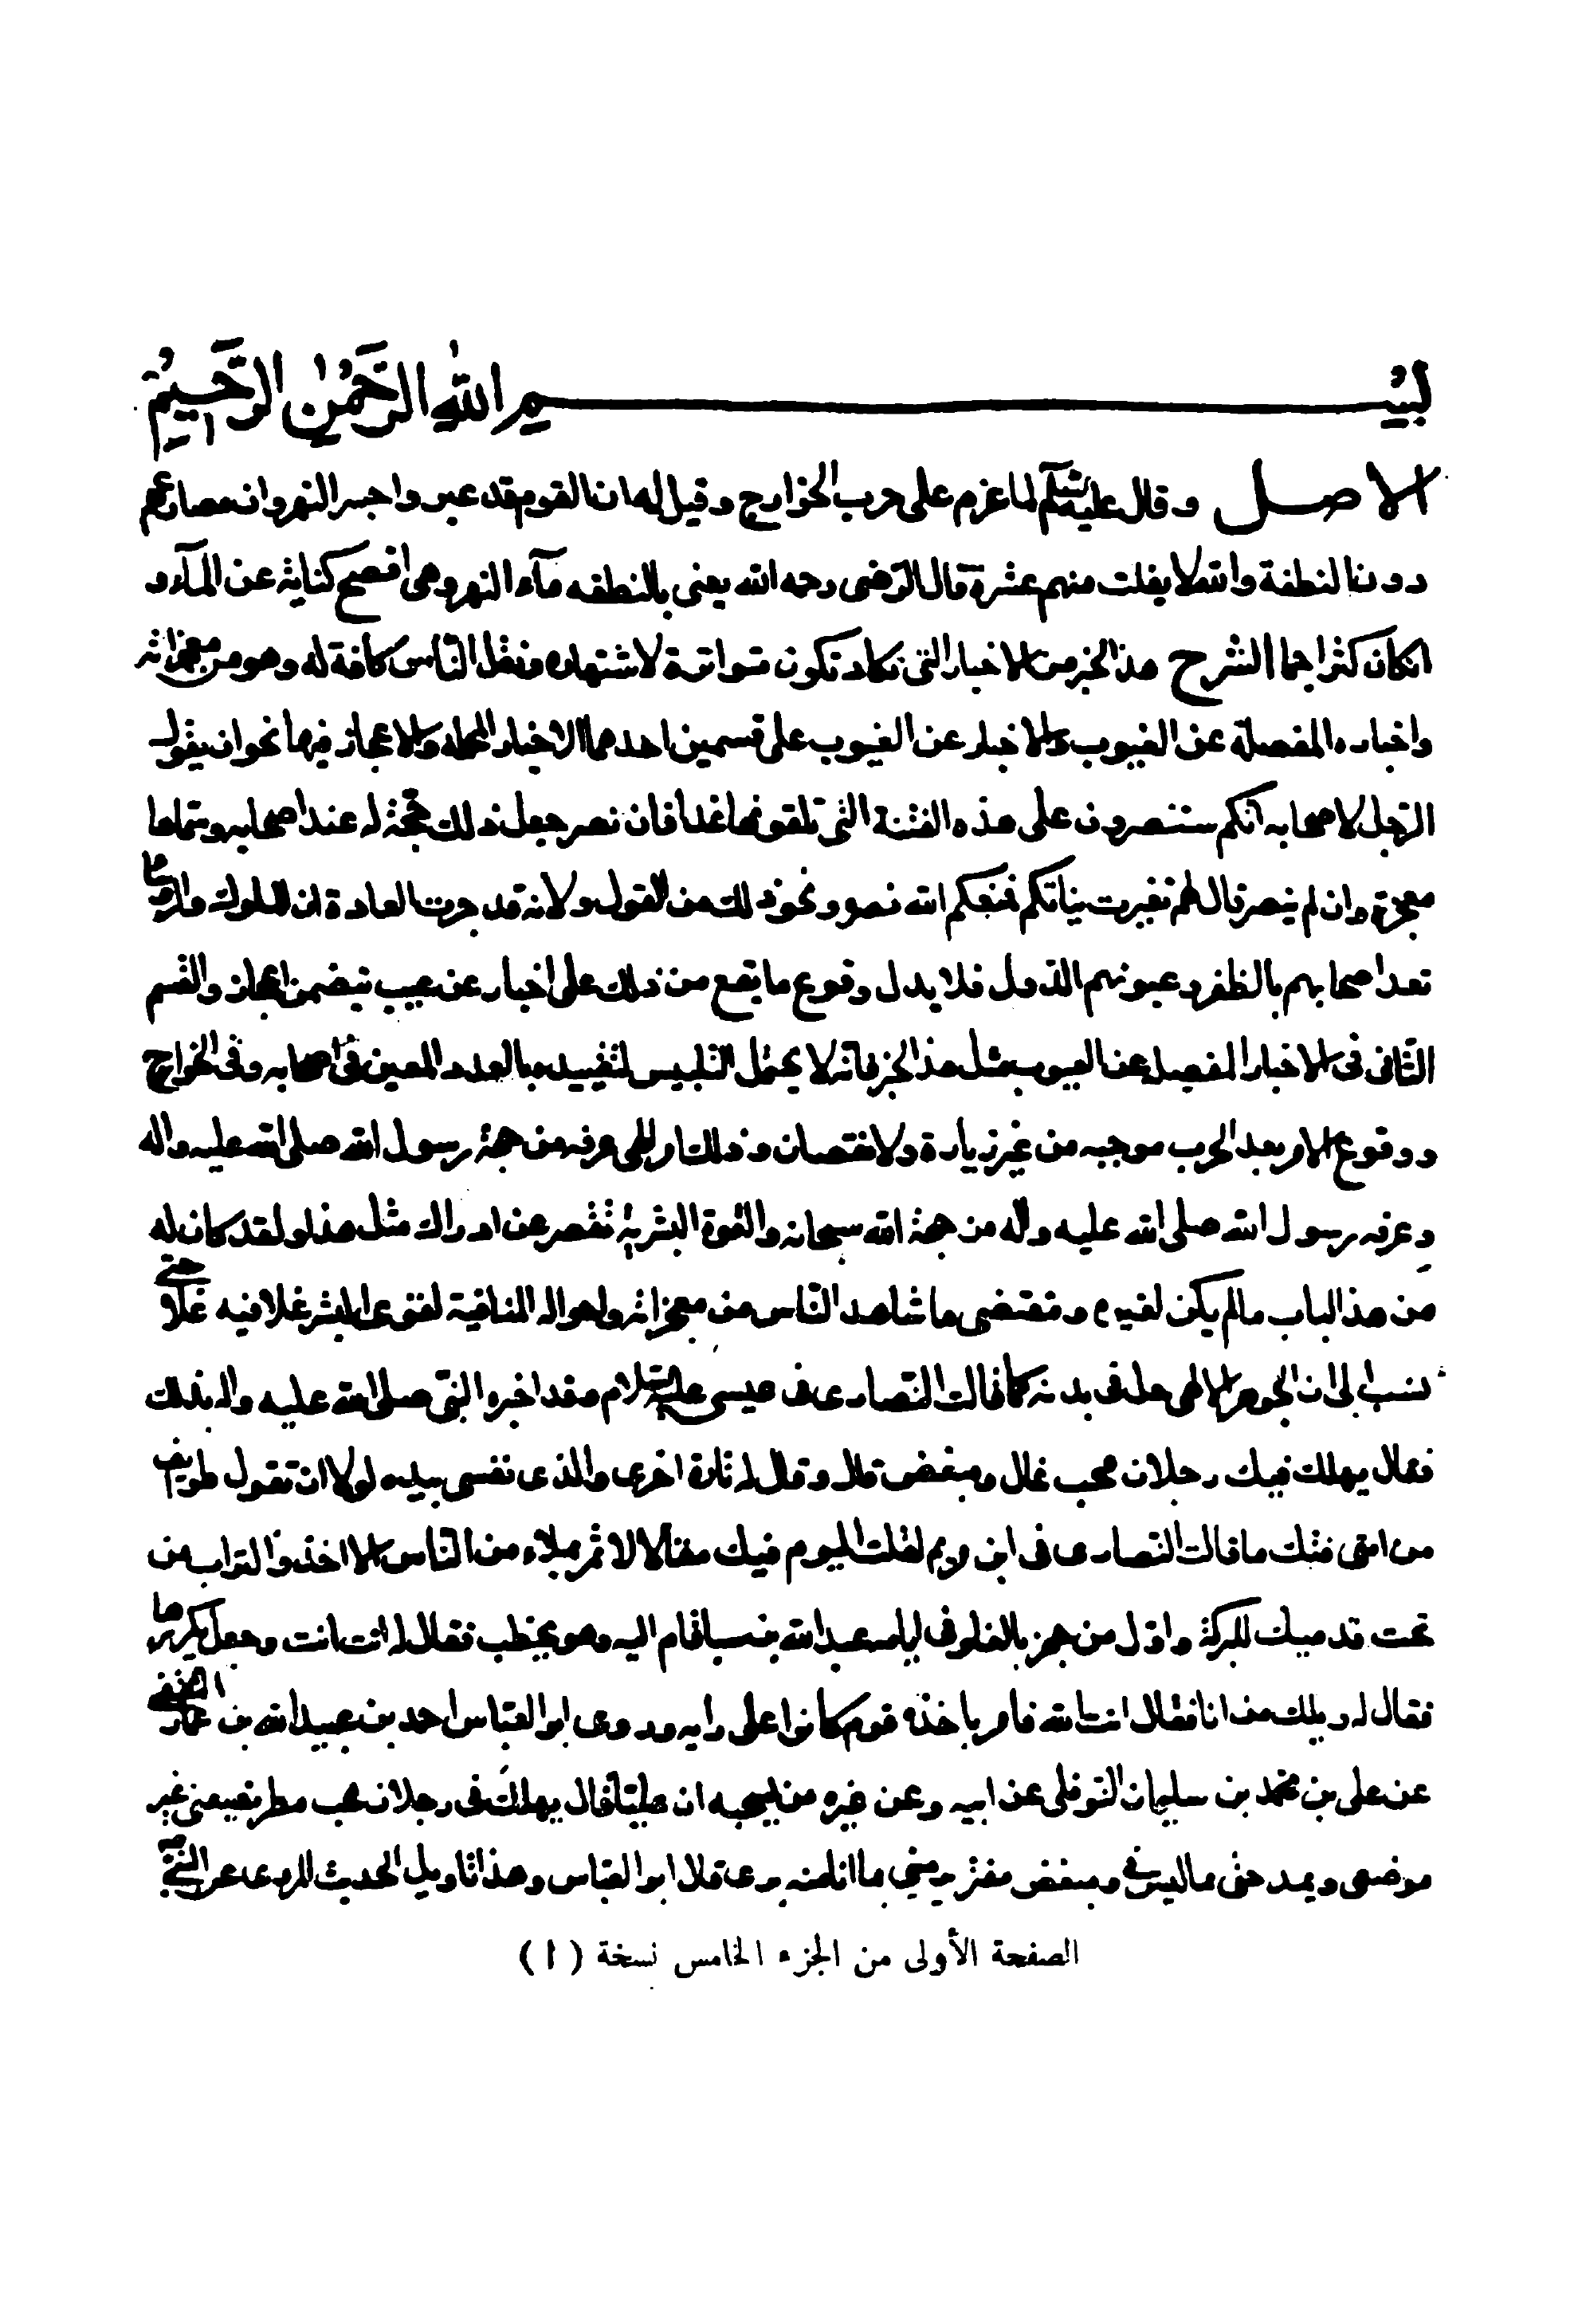 بسم الله الرحمن الرحيم
الاصل وقال عليه السلم لما عزم على حرب الخوارج وقيل له ان القوم قد عبروا جسر النهروان مصارعهم
دون النطفة والله لا يفلت منهم عشرة قال الرضى رحمه الله يعنى بالنطفه مآء النهر وهى افصح كناية عن المآء و
ان كان كثيرا جما الشرح هذا الخبر من الاخبار التى تكاد تكون متواترة لاشتهاره ونقل الناس كافة له وهو من معجزاته
واخباره المفصلة عن الغيوب والاخبار عن الغيوب على قسمين احدهما الاخبار المجملة ولا اعجاز فيها نحو ان يقول
الرجل لاصحابه انكم ستنصرون على هذه الفئة التى تلقونها غدا فان نصر جعل ذلك حجة له عند اصحابه وسماها
معجزة وان لم ينصر قال لهم تغيرت نياتكم فمنعكم الله نصره ونحو ذلك من القول ولانه قد جرت العادة ان الملوك والروسا
تعد اصحابهم بالظفر و الدول فلا يدل وقوع ما يقع من ذلك على اخبار عن غيب يتضمن اعجازا والقسم
الثانى فى الاخبار المفصلة عن الغيوب مثل هذا الخبر فانه لا يحتمل التلبيس لتقييده بالعدد المعين فى اصحابه وفى الخوارج
ووقوع الامر بعد الحرب بموجبه من غير زيادة ولا نقصان وذلك امر الهى عرفه من جهة رسول الله صلى الله عليه واله
وعرفه رسول الله صلى الله عليه واله من جهة الله سبحانه والقوة البشرية تقصر عن ادراك مثل هذا ولقد كان له
من هذا الباب ما لم يكن لغيره وبمقتضى ما شاهد الناس من معجزاته واحواله المنافية لقوى البشر غلا فيه من غلا حتى
نسب الى ان الجوهر الالهى حل فى بدنه كما قالت النصارى فى عيسى عليه السلام وقد اخبره النبى صلى الله عليه واله بذلك
فقال يهلك فيك رجلان محب غال ومبغض قال وقال له تارة اخرى والذى نفسى بيده لولا ان تقول طوايف
من امتى فيك ما قالت النصارى فى ابن مريم لقلت اليوم فيك مقالا لا تمر بملاء من الناس الا اخذوا التراب من
تحت قدميك للبركة واول من جهر بالغلو فى ايامه عبد الله بن سبا قام اليه وهو يخطب فقال له انت انت وجعل يكررها
فقال له ويلك من انا فقال انت الله فامر باخذه قوم كانوا على رايه وروى ابو العباس احمد بن عبيد الله بن عمار الثقفى
عن على بن محمد بن سليمان النوفلى عن ابيه وعن غيره من مشيخته ان عليا قال يهلك فى رجلان محب مطر يضعنى غير
موضعى ويمدحنى بما ليس فى ومبغض مفتر يرمينى بما انا منه برى قال ابو العباس وهذا تاويل الحديث المروى عن النبى
الصفحة الأولى من الجزء الخامس نسخة ( ا )